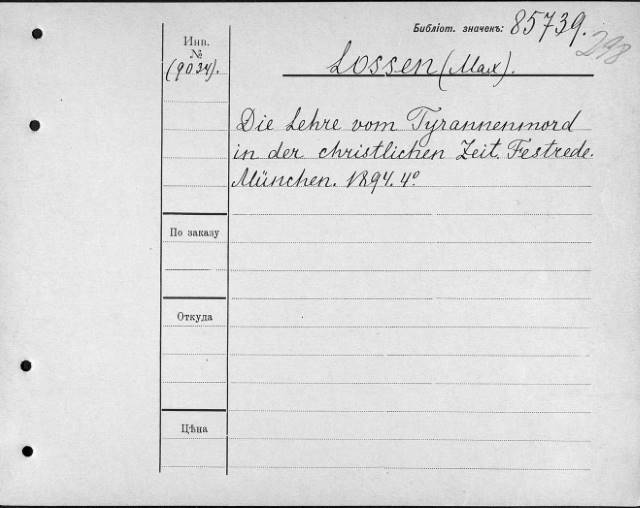 Библіот. значекъ: 85739.
298
Инв.
№
(9034).
Lossen (Max).
Die Lehre vom Tyrannenmord
in der christlichen Zeit. Festrede.
München. 1894. 4°
По заказу
Откуда
Цѣна